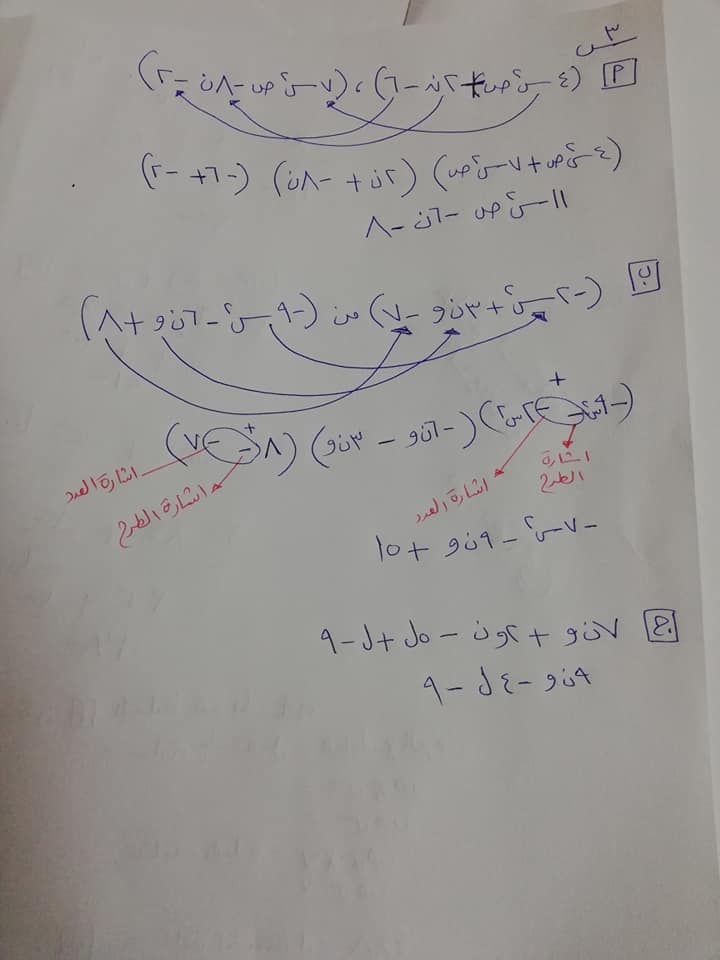 س٣
أ (٤ س٢ص + ٢ن - ٦) ، (٧ س٢ص - ٨ن - ٢)
(٤ س٢ص + ٧ س٢ص) (٢ن + - ٨ن) (- ٦ + - ٢)
١١ س٢ص - ٦ن - ٨
ب (- ٢ س٢ + ٣ن و - ٧) من (- ٩ س٢ - ٦ن و + ٨)
+
(- ٩س٢ - - ٢س٢) (- ٦ن و - ٣ن و) (٨ - + - ٧)
اشارة الطرح اشارة العدد اشارة الطرح اشارة العدد
- ٧ س٢ - ٩ن و + ١٥
ج ٧ن و + ٢ون - ٥ل + ل - ٩
٩ن و - ٤ل - ٩